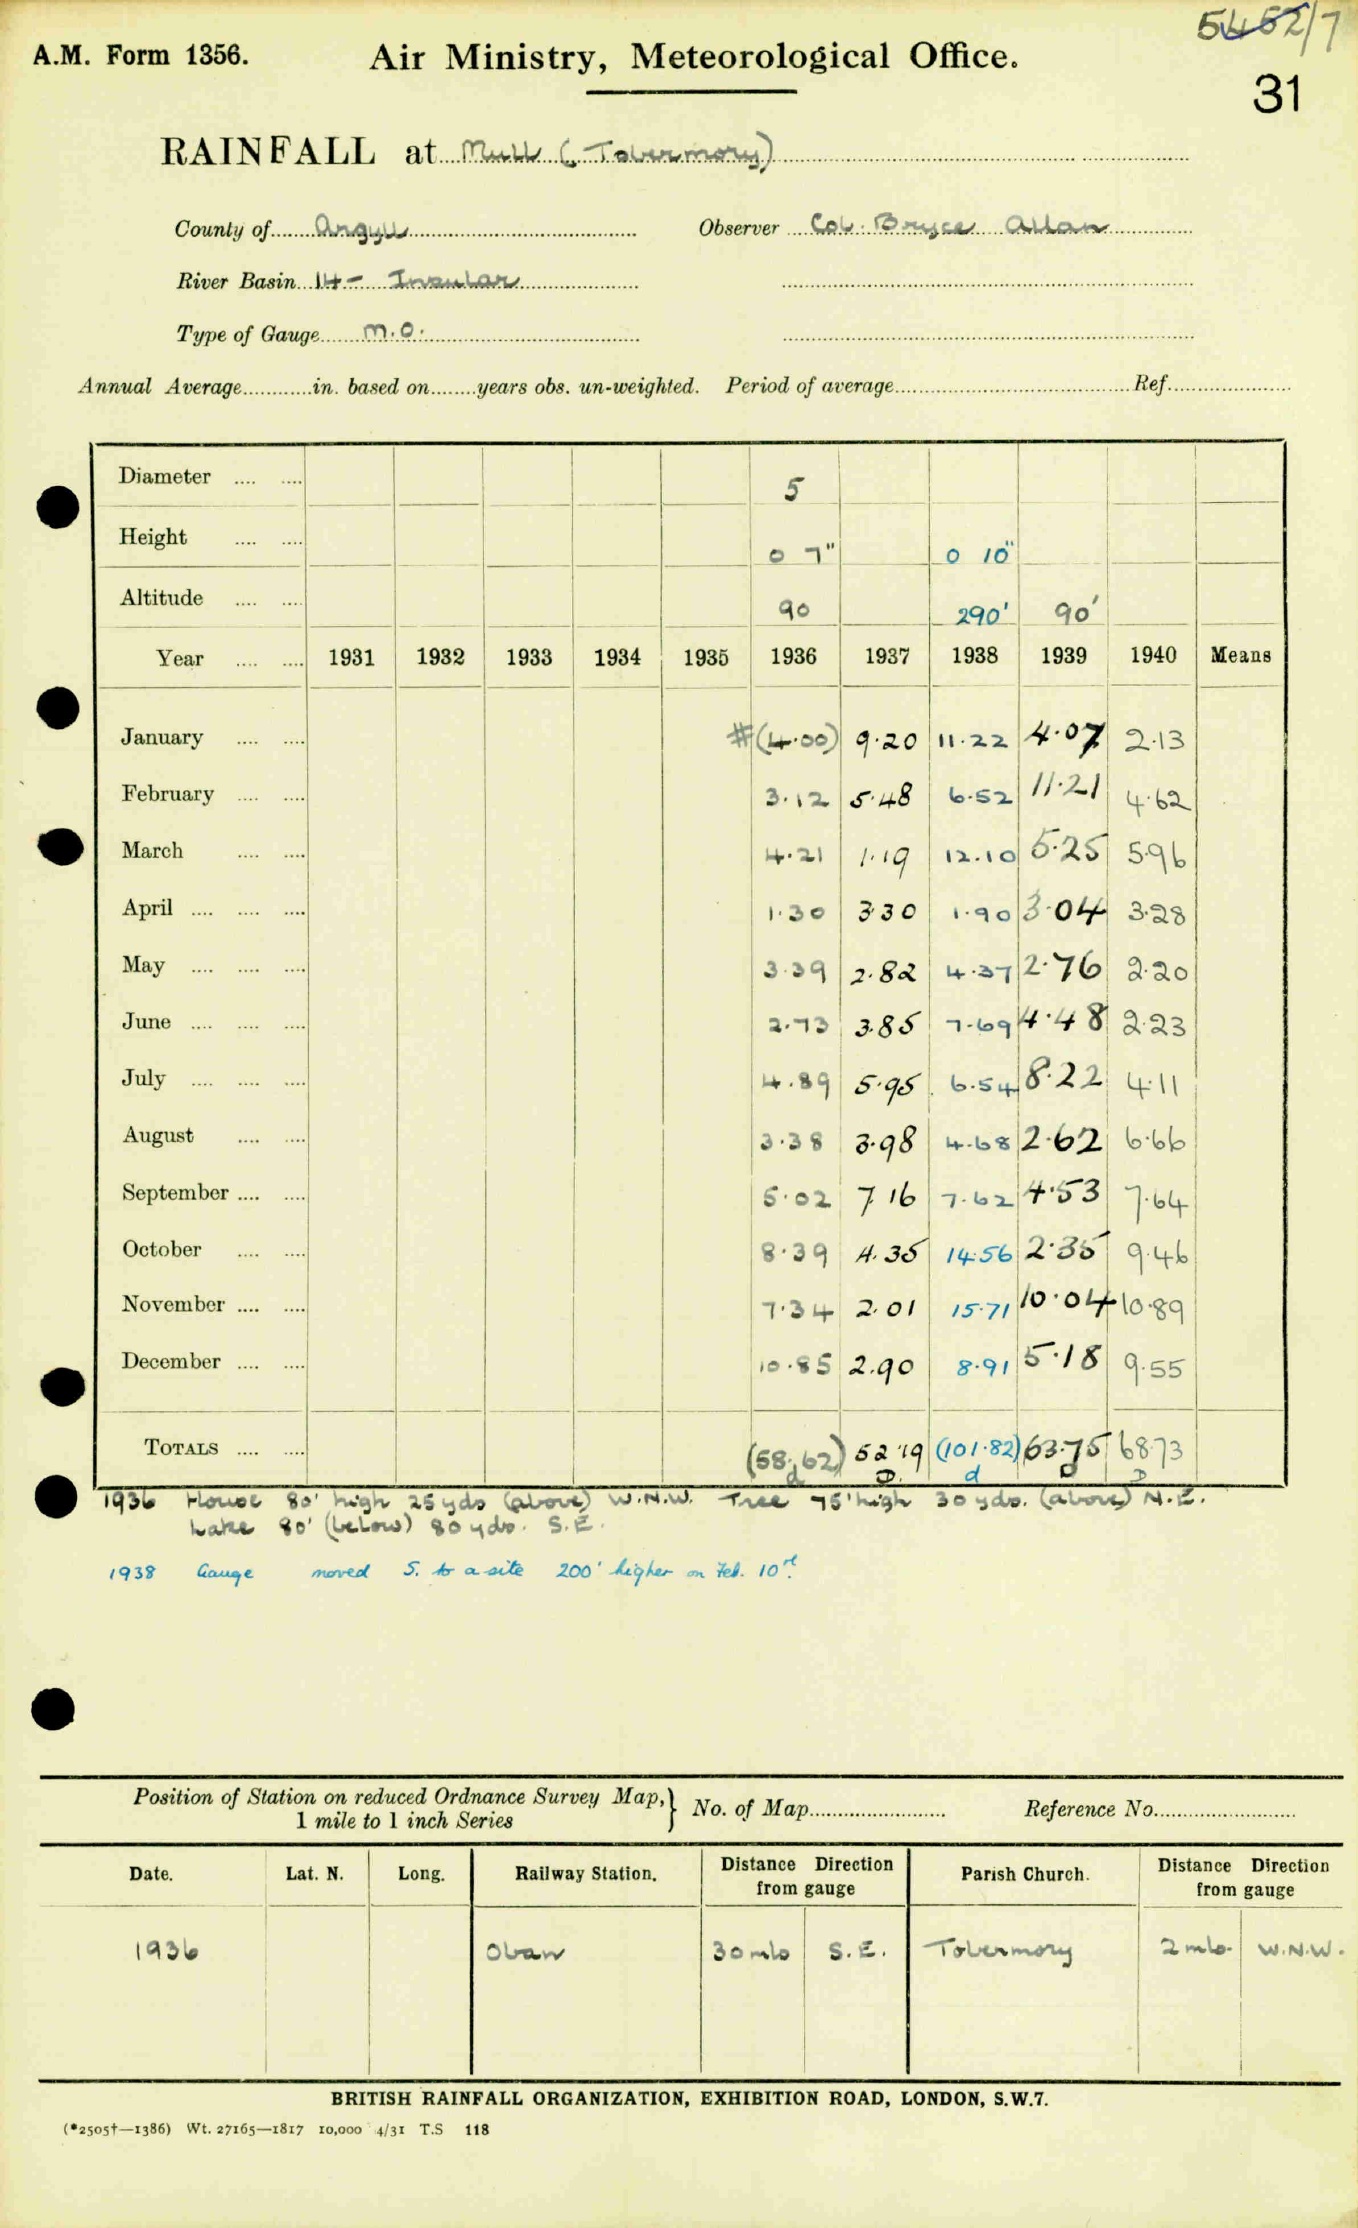 5452/7
A.M. Form 1356. Air Ministry, Meteorological Office.
31
RAINFALL at Mull (Tobermory)
County of Argyll Observer Col. Bryce Allan
River Basin 14- Insular
Type of Gauge M.O.
Annual Average in. based on years obs. un-weighted. Period of average Ref.
Diameter 5
Height 0 7" 0 10"
Altitude 90 290' 90'
Year 1931 1932 1933 1934 1935 1936 1937 1938 1939 1940 Means
January #(4.00) 9.20 11.22 4.07 2.13
February 3.12 5.48 6.52 11.21 4.62
March 4.21 1.19 12.10 5.25 5.96
April 1.30 3.30 1.90 3.04 3.28
May 3.39 2.82 4.37 2.76 2.20
June 2.73 3.85 7.69 4.48 2.23
July 4.89 5.95 6.54 8.22 4.11
August 3.38 3.98 4.68 2.62 6.66
September 5.02 7.16 7.62 4.53 7.64
October 8.39 4.35 14.56 2.35 9.46
November 7.34 2.01 15.71 10.04 10.89
December 10.85 2.90 8.91 5.18 9.55
TOTALS (58.62) 52.19 (101.82) 63.75 68.73
d D d D D
1936 House 80' high 25 yds (above) W.N.W. Tree 75' high 30 yds. (above) N.E.
Lake 80' (below) 80 yds. S.E.
1938 Gauge moved S. to a site 200' higher on Feb. 10th.
Position of Station on reduced Ordnance Survey Map, } No. of Map Reference No.
1 mile to 1 inch Series
Date. Lat. N. Long. Railway Station. Distance Direction from gauge Parish Church. Distance Direction from gauge
1936 Oban 30 mls S.E. Tobermory 2 mls. W.N.W.
BRITISH RAINFALL ORGANIZATION, EXHIBITION ROAD, LONDON, S.W.7.
(*2505†—1386) Wt. 27165—1817 10,000 4/31 T.S 118